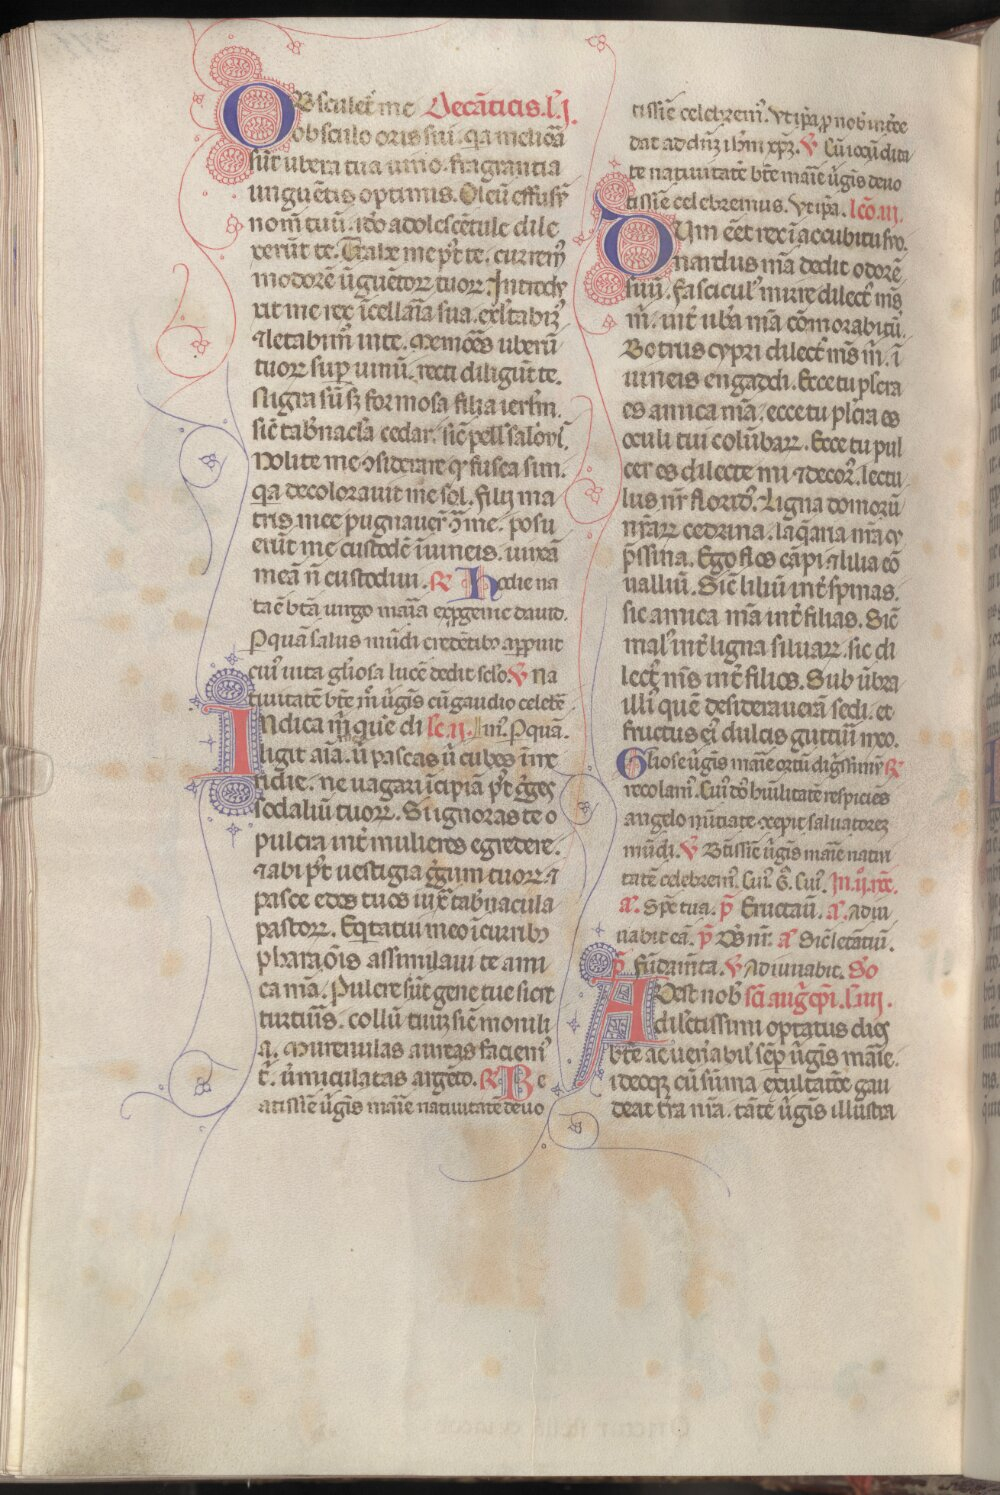 OBsculet͛ me De cāticis. l̃. j.
obsculo oris sui. q̃a melio͛a
sūt ubera tua uino. fragrantia
unguētis optimis. Oleū effusū
nom̃ tuū. ido adolescētule dile
xerūt te. Trahe me pꝰt te. currem͛
in odorē ūguētoꝝ tuoꝝ. Introdu
xit me rex ī cellaīa sua. exl̃tabim͛
⁊ letabim͛ in te. memo͛es uberū
tuoꝝ sup̱ uinū. recti diligūt te.
Nigra sū sꝫ formosa filia ierl̃m.
sic̃ tab̃nacl̃a cedar. sic̃ pell̃ salo͛n̄.
Nolite me ꝯsiderare qꝫ fusca sim.
q̃a decolorauit me sol. Filij ma
tris mee pugnauer̃t ꝯ̃ me. posu
erūt me custodē ī uineis. uineā
meā ñ custodiui. ℟ Hodie na
ta ē bt̃a uirgo maīa ex p̱genie dauid.
P quā salus mūdi credētibꝰ apparuit
cuiꝰ uita gl̃iosa lucē dedit sc̃lo. ℣ Na
tiuitatē bt̃e m̃ ũgis cū gaudio celeb̃e
INdica m̃ quē di lc̃. ij. m͛. P quā.
ligit aīa. ũ pascas ũ cubes ī me
ridie. ne uagari īcipiā pꝰt g̃ges
sodaliū tuoꝝ. Si ignoras te o
pulcra int̃ mulieres egredere.
⁊ abi pꝰt uestigia g̃gum tuoꝝ ⁊
pasce edos tuos iux̃ tab̃nacula
pastoꝝ. Eq̃tatui meo ī curribꝫ
pharaōis assimilaui te ami
ca m̃a. Pulcre sūt gene tue sicut
turturis. collū tuū sic̃ monili
a. Murenulas aureas faciem͛
t̃. ũmiculatas argēto. ℟ Be
atissīe ũgis maīe natiuitatē deuo
tissīe celebrem͛. Vt ip̃a p̱ nob̃ int̃ce
dat ad dn̄ꝫ ih̄m xp̄ꝫ. ℣ Cū iocūdita
te natiuitatē bt̃e maīe ũgis deuo
tissīe celebremus. Vt ip̃a. lc̃o. iij.
DUm eēt rex ī accubitu suo.
nardus m̃a dedit odorē
suū. Fascicul̃ mirre dilect̃ m̃s
m̃. int̃ ub̃a m̃a cōmorabit͛.
Botrus cypri dilect̃ m̃s m̃. ī
uineis engaddi. Ecce tu pl̃cra
es amica m̃a. ecce tu pl̃cra es
oculi tui colūbaꝝ. Ecce tu pul
cer es dilecte mi ⁊ decor͛. lectu
lus nr̃ florid͛. Ligna domorū
nr̃aꝝ cedrina. laq̃aria nr̃a cy
p̃ssina. Ego flos cāpi ⁊ lilia cō
ualliū. Sic̃ liliū int̃ spinas.
sic amica m̃a int̃ filias. Sic̃
mal̃ int̃ ligna siluaꝝ. sic di
lect̃ m̃s int̃ filios. Sub ūbra
illi͛ quē desideraueram sedi. et
fructus ei͛ dulcis gutturi meo.
Gliose ũgis maīe ortū dig̃ssimū ℟
recolam͛. Cui͛ dn̄s hūilitatē respiciēs
angelo nūtiāte ꝯcepit saluatorem
mūdi. ℣ Bt̃issīe ũgis maīe natiui
tatē celebrem͛. Cui͛. G̃. Cui͛. In. ij. nc̃t.
a͛. Spē tua. p̃ Eructauit. a͛. Adiu
uabit eā. p̃ Ds̄ nr̃. a͛ Sic̃ letātiū.
p̃ Fūdam̃ta. ℣ Adiuuabit. S̃o
ADest nob̃ sc̃i aug̃ ep̃i. l̃. iiij.
dilc̃tissimi optatus dies
bt̃e ac uen̄abil̃ sēp̱ ũgis maīe.
ideoqꝫ cū sūma exultatōe gau
deat t̃ra nr̃a. tāte ũgis illustra